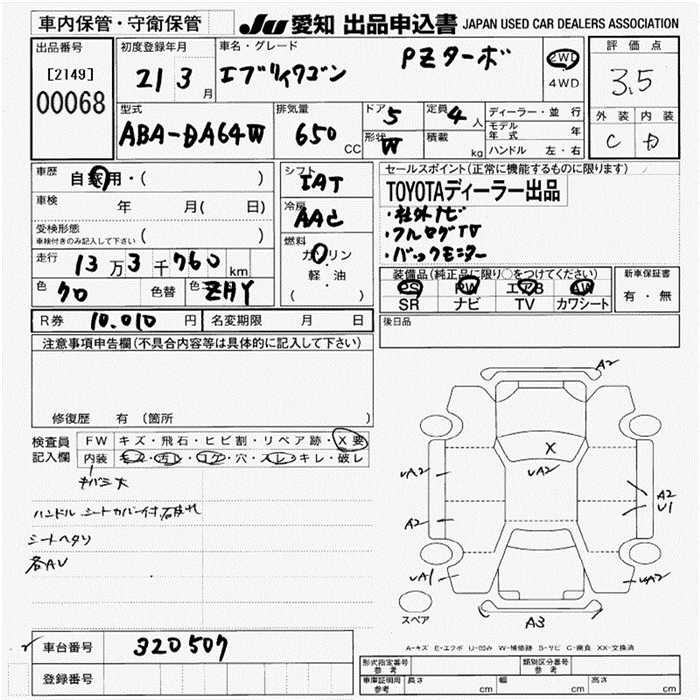 車内保管・守衛保管
JU 愛知 出品申込書 JAPAN USED CAR DEALERS ASSOCIATION
出品番号
[2149]
00068
初度登録年月
21 3 月
車名・グレード
エブリイワゴン PZターボ
2WD
4WD
評価点
3.5
外装 内装
C D
型式
ABA-DA64W
排気量
650 CC
ドア 5
形状 W
定員 4 人
積載 kg
ディーラー・並行
モデル年式 年
ハンドル 左・右
車歴
自家用・( )
車検 年 月( 日)
受検形態
車検付きのみ記入して下さい ( )
走行 13万3千760 km
色 クロ 色替 色 ZHY
シフト
IAT
冷房
AAC
燃料
ガソリン
軽・油
( )
セールスポイント(正常に機能するものに限ります)
TOYOTAディーラー出品
・社外ナビ
・フルセグTV
・バックモニター
装備品(純正品に限り○をつけてください)
PS PW エアB AW
SR ナビ TV カワシート
新車保証書
有・無
R券 10.010 円 名変期限 月 日
後日品
注意事項申告欄(不具合内容等は具体的に記入して下さい)
修復歴 有 (箇所 )
検査員
記入欄
FW キズ・飛石・ヒビ割・リペア跡・X要
内装 キズ・汚レ・コゲ・穴・スレ・キレ・破レ
ハンドル シートカバー付
シートヘタリ
各AU
A2
X
UA2
UA2
A2
A2
U1
UA1
UA2
A3
スペア
A-キズ E-エクボ U-凹み W-補修跡 S-サビ C-腐食 XX-交換済
車台番号 320507
登録番号
形式指定番号
参考
類別区分番号
参考
車庫証明用
参考
長さ cm 幅 cm 高さ cm